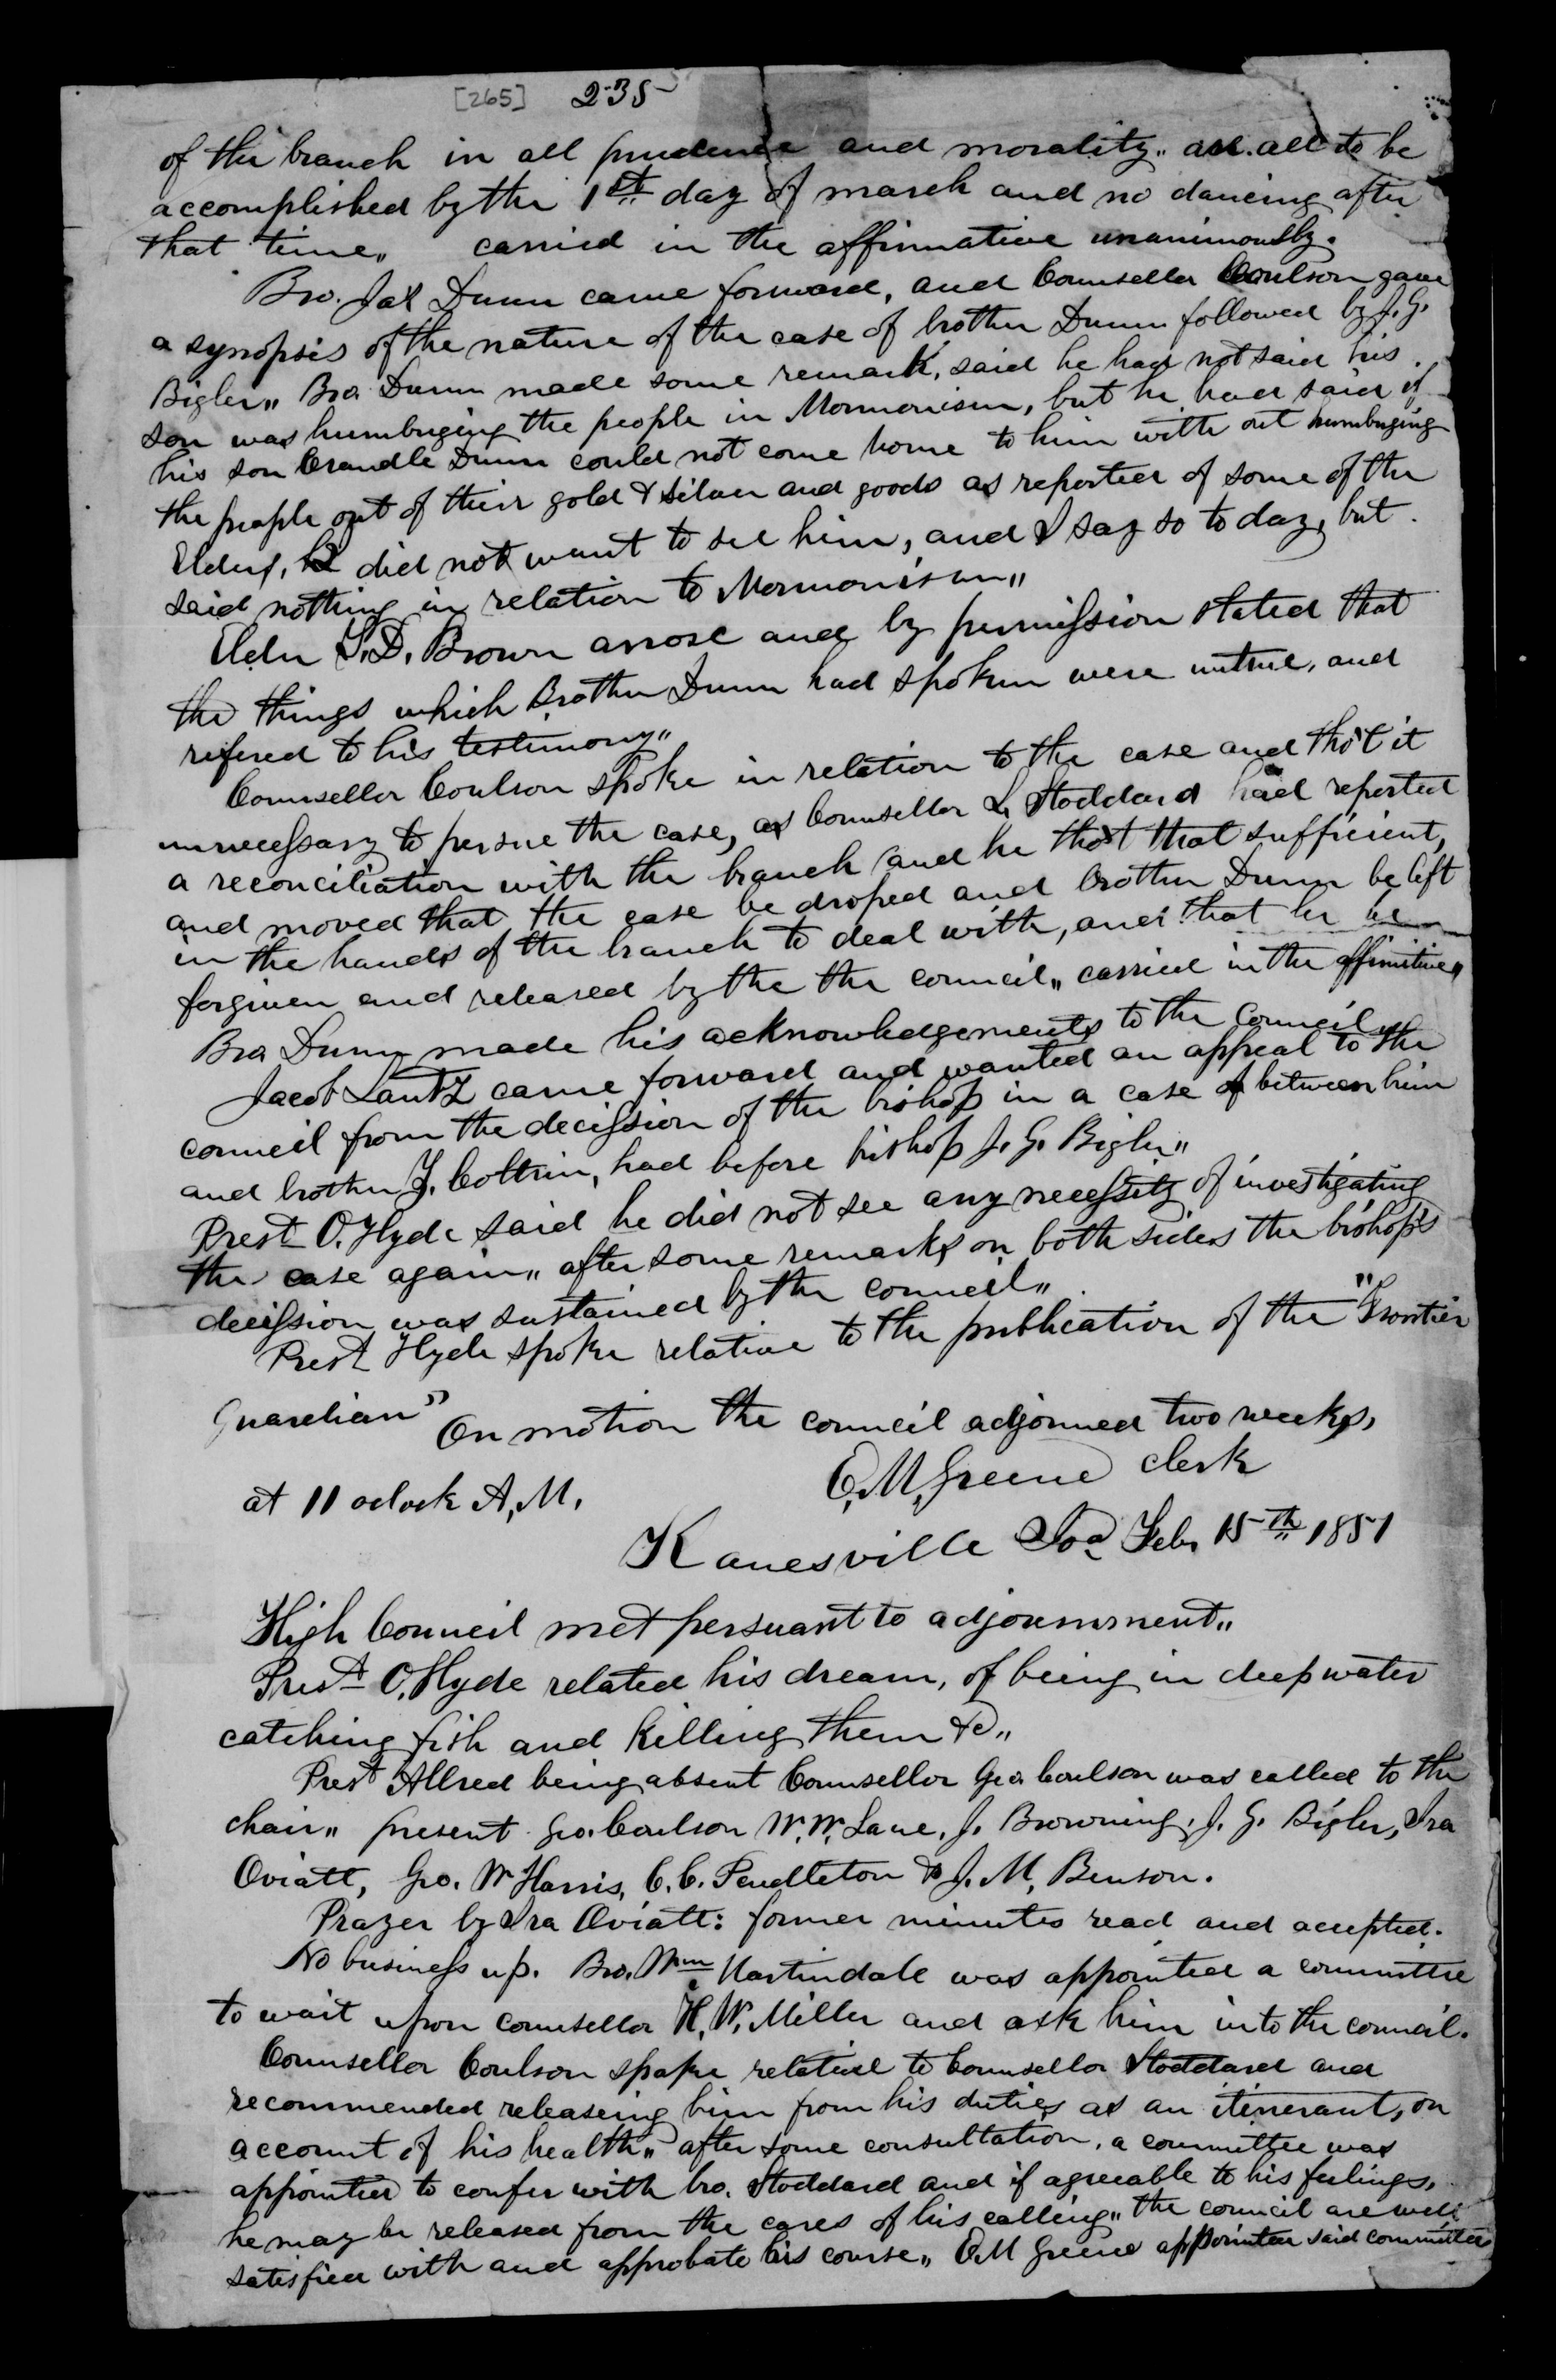 [265] 235
of the branch in all prudence and morality „ and all to be
accomplished by the 1st day of march and no dancing after
that time „ carried in the affirmative unanimously.
Bro. Jas Dunn came forward, and Counsellor Coulson gave
a synopsis of the nature of the case of brother Dunn followed by J. G.
Bigler „ Bro Dunn made some remark, said he had not said his
son was humbuging the people in Mormonism, but he had said if
his son Crandle Dunn could not come home to him with out humbuging
the people out of their gold & silver and goods as reported of some of the
Elders, he did not want to see him, and I say so to day, but
said nothing in relation to Mormonism „
Elder S. D. Brown arrose and by permission stated that
the things which Brother Dunn had spoken were untrue, and
refered to his testimony „
Counsellor Coulson spoke in relation to the case and thot it
unnecessary to persue the case, as Counsellor L. Stoddard had reported
a reconciliation with the branch and he thot that sufficient,
and moved that the case be droped and brother Dunn be left
in the hands of the branch to deal with, and that he be
forgiven and released by the the council „ carried in the affimitive „
Bro Dunn made his acknowledgements to the council „
Jacob Lantz came forward and wanted an appeal to the
council from the decission of the bishop in a case of between him
and brother Z. Coltrin, had before bishop J. G. Bigler „
Prest O. Hyde said he did not see any necessity of investigating
the case again „ after some remarks on both sides the bishop's
decission was sustained by the council „
Prest Hyde spoke relative to the publication of the "Frontier
Guardian" On motion the council adjorned two weeks,
at 11 oclock A, M, E, M, Greene clerk
Kanesville Ioa Feb. 15th 1851
High Council met persuant to adjournment „
Prest O. Hyde related his dream, of being in deep water
catching fish and killing them &c „
Prest Allred being absent Counsellor Geo. Coulson was called to the
chair „ present Geo. Coulson W. W. Lane, J. Browning, J. G. Bigler, Ira
Oviatt, Geo. W Harris, C. C. Pendleton & J. M, Benson.
Prayer by Ira Oviatt: former minutes read and accepted.
No business up. Bro. Wm Martindale was appointed a committee
to wait upon counsellor H. W. Miller and ask him into the council.
Counsellor Coulson spoke relative to Counsellor Stoddard and
recommended releaseing him from his duties as an itinerant, on
account of his health „ after some consultation, a committee was
appointed to confer with bro. Stoddard and if agreeable to his feelings,
he may be released from the cares of his calling „ the council are well
satisfied with and approbate his course „ E. M Greene appointed said committee